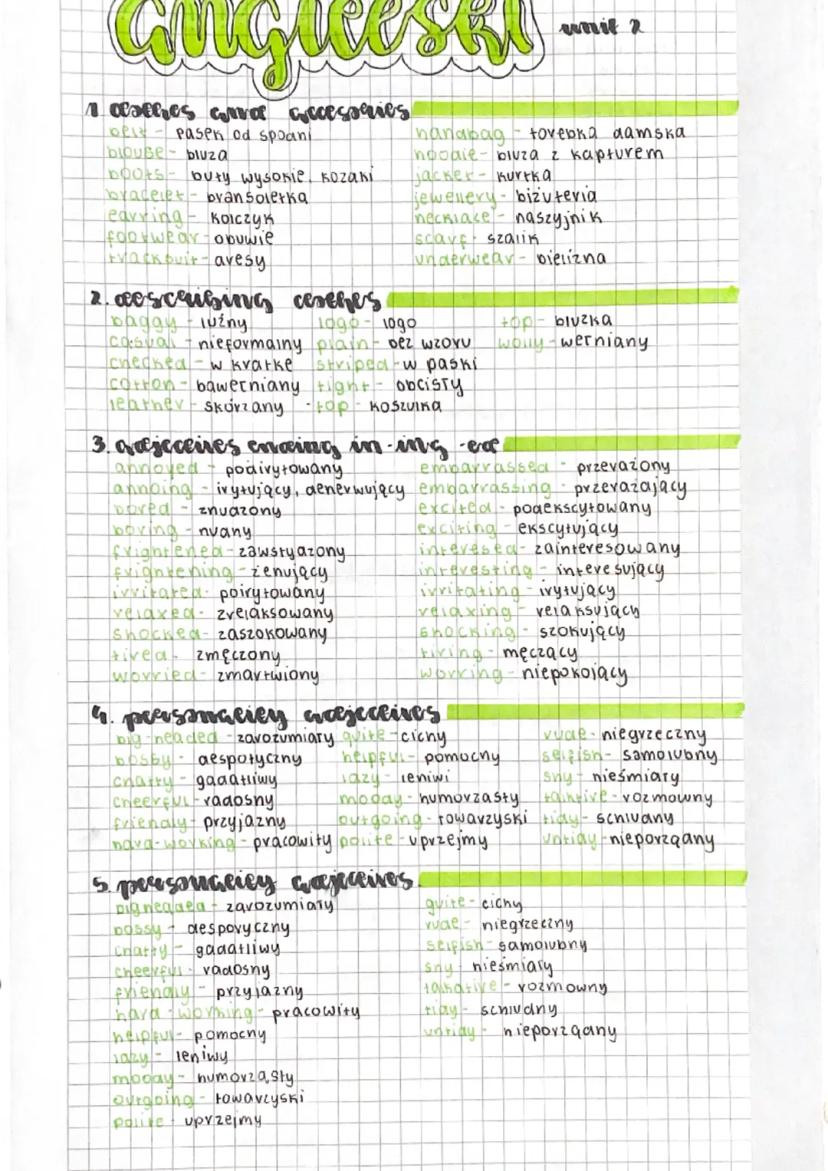 angielski unit 2
1. clothes and accesories
belt - pasek od spodni
blouse - bluza
boots - buty wysokie, kozaki
bracelet - bransoletka
earring - kolczyk
footwear - obuwie
tracksuit - dresy
handbag - torebka damska
hoodie - bluza z kapturem
jacket - kurtka
jewellery - biżuteria
necklace - naszyjnik
scarf - szalik
underwear - bielizna
2. describing clothes
baggy - luźny
casual - nieformalny
checked - w kratkę
cotton - bawełniany
leather - skórzany
logo - logo
plain - bez wzoru
striped - w paski
tight - obcisły
top - koszulka
top - bluzka
wolly - wełniany
3. adjectives ending in -ing -ed
annoyed - podirytowany
annoing - irytujący, denerwujący
bored - znudzony
boring - nudny
frightened - zawstydzony
frightening - żenujący
irritated - poirytowany
relaxed - zrelaksowany
shocked - zaszokowany
tired - zmęczony
worried - zmartwiony
embarrassed - przerażony
embarrassing - przerażający
excited - podekscytowany
exciting - ekscytujący
interested - zainteresowany
interesting - interesujący
irritating - irytujący
relaxing - relaksujący
shocking - szokujący
tiring - męczący
worring - niepokojący
4. personality adjectives
big-headed - zarozumiały
bossy - despotyczny
chatty - gadatliwy
cheerful - radosny
friendly - przyjazny
hard-working - pracowity
quite - cichy
helpful - pomocny
lazy - leniwi
moody - humorzasty
outgoing - towarzyski
polite - uprzejmy
rude - niegrzeczny
selfish - samolubny
shy - nieśmiały
talktive - rozmowny
tidy - schludny
untidy - nieporządany
5. personality adjectives
bigheaded - zarozumiały
bossy - despotyczny
chatty - gadatliwy
cheerful - radosny
friendly - przyjazny
hard-working - pracowity
helpful - pomocny
lazy - leniwy
moody - humorzasty
outgoing - towarzyski
polite - uprzejmy
quite - cichy
rude - niegrzeczny
selfish - samolubny
shy - nieśmiały
talkative - rozmowny
tidy - schludny
untidy - nieporządany